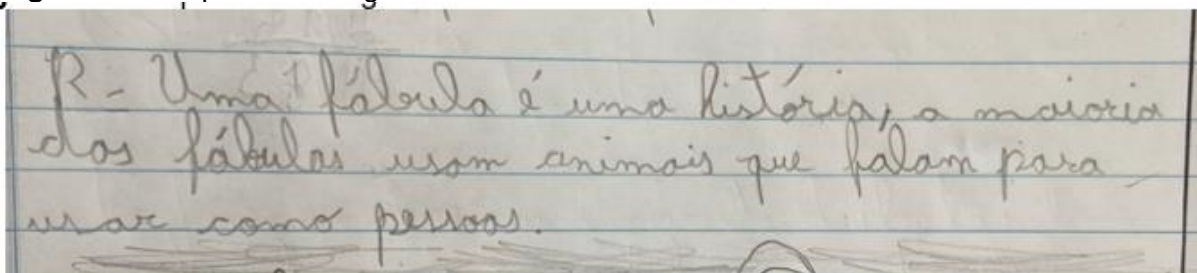 R- Uma fábula é uma história, a maioria
das fábulas usam animais que falam para
usar como pessoas.